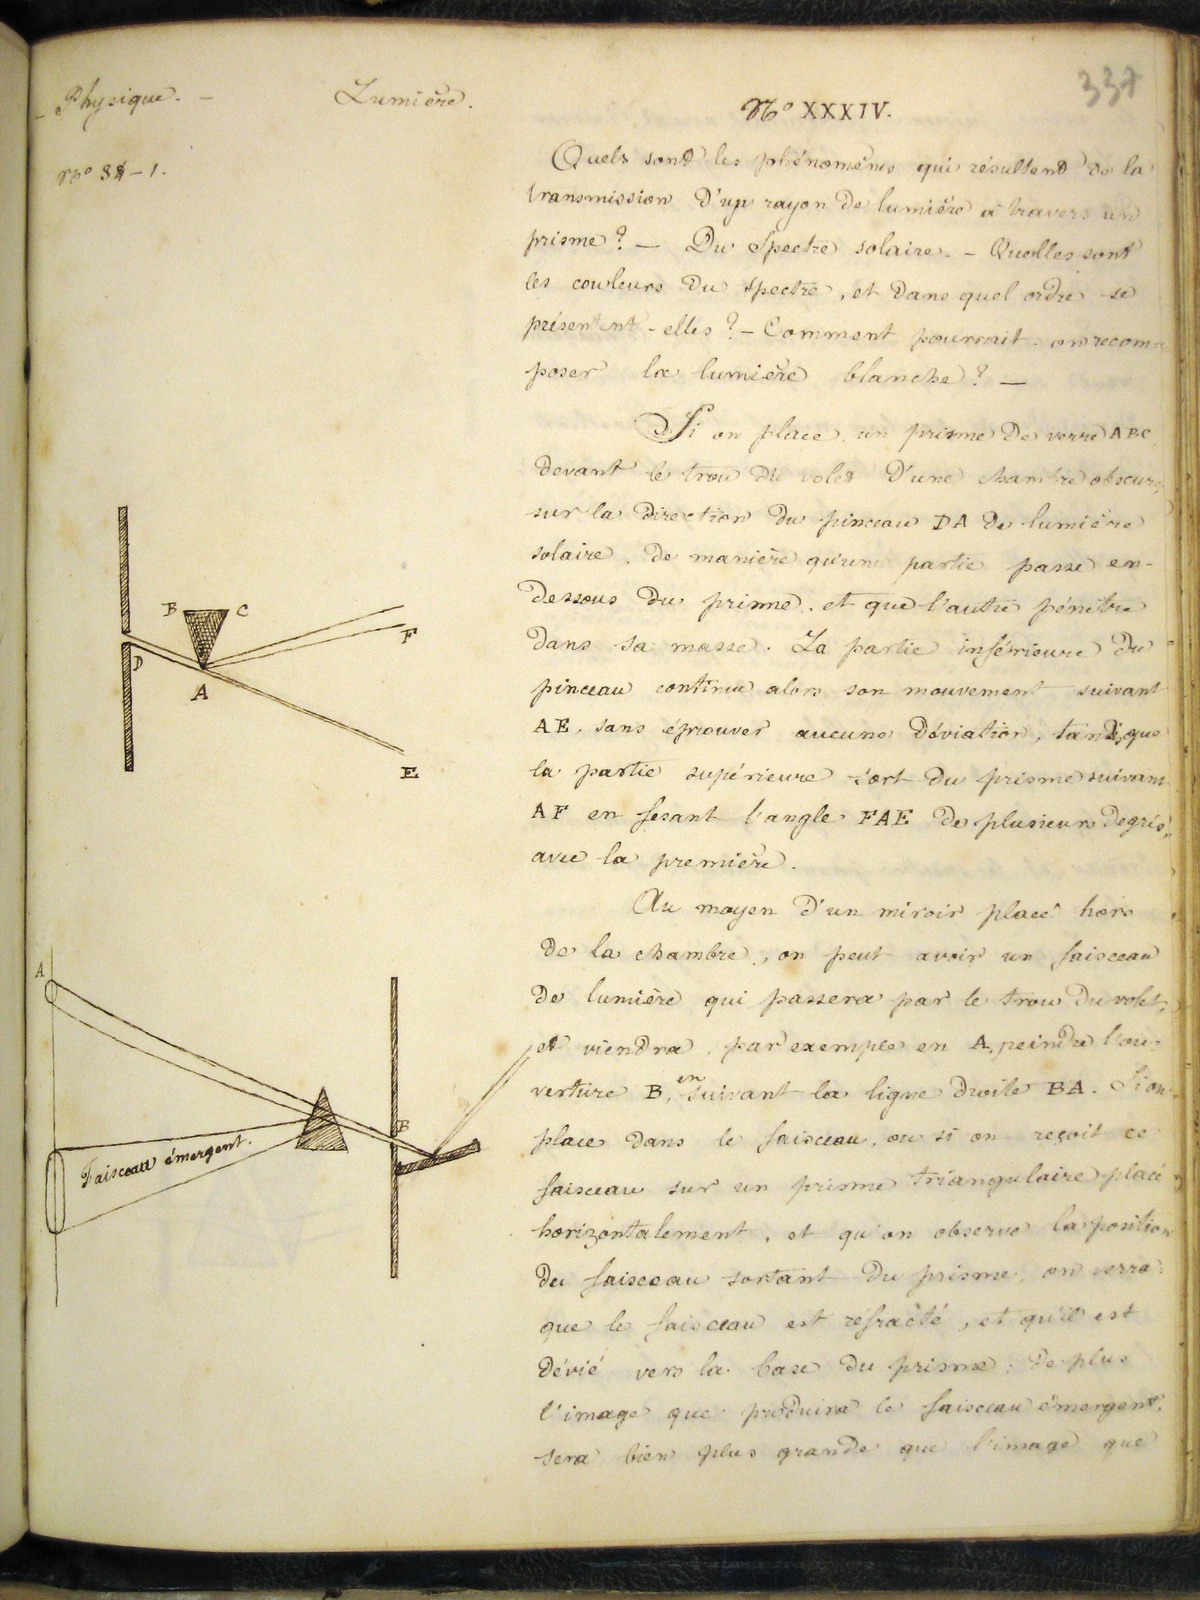 337
Physique. — Lumière.
Nº 34 - 1.
Nº XXXIV.
Quels sont les phénomènes qui résultent de la
transmission d'un rayon de lumière à travers un
prisme ? — Du Spectre solaire. - Quelles sont
les couleurs du spectre, et dans quel ordre se
présentent-elles ? - Comment pourrait-on recom
poser la lumière blanche ? —
Si on place un prisme de verre ABC
devant le trou du volet d'une chambre obscure
sur la direction du pinceau DA de lumière
solaire, de manière qu'une partie passe en-
dessous du prisme, et que l'autre pénètre
dans sa masse. La partie inférieure du
pinceau continue alors son mouvement suivant
AE, sans éprouver aucune déviation, tandisque
la partie supérieure sort du prisme suivant
AF en fesant l'angle FAE de plusieurs degrés,
avec la première.
Au moyen d'un miroir placé hors
de la chambre, on peut avoir un faisceau
de lumière qui passera par le trou du volet,
et viendra, par exemple en A, peindre l'ou-
verture B, en suivant la ligne droite BA. Si on
place dans le faisceau, ou si on reçoit ce
faisceau sur un prisme triangulaire placé
horizontalement, et qu'on observe la position
du faisceau sortant du prisme, on verra
que le faisceau est réfracté, et qu'il est
dévié vers la base du prisme. De plus
l'image que produira le faisceau émergent,
sera bien plus grande que l'image que
B C
D
F
A
E
A
B
Faisceau émergent.